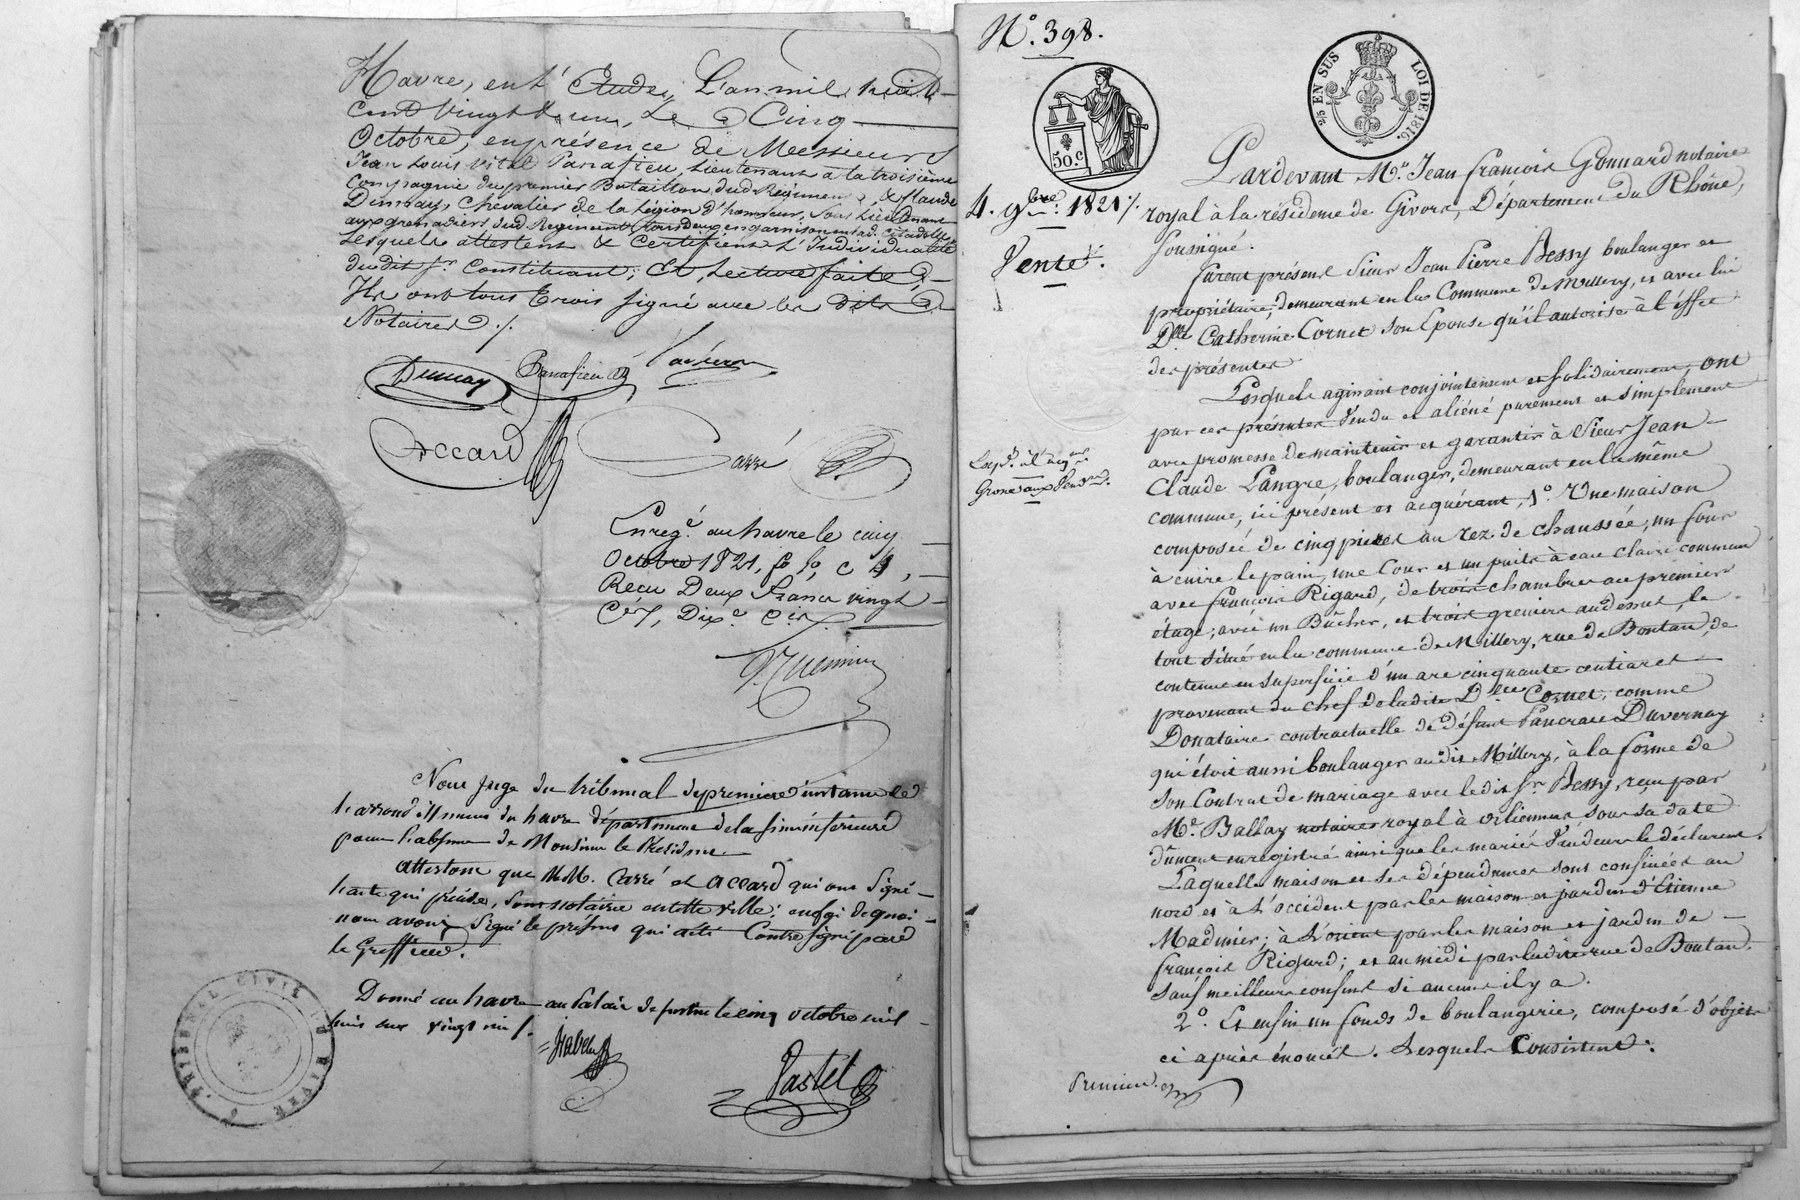 Havre, en l'Etude, L'an mil huit
cent vingt un, Le Cinq
Octobre, en présence de Messieurs
Jean Louis Vital Panafieu, Lieutenant à la troisième
Compagnie du premier Bataillon dud. Régiment, & Claude
Dunnay, Chevalier de la Légion d'honneur, Sous Lieutenant
aux grenadiers dud Regiment, tous deux en garnison en lad. Citadelle
Lesquels attestent & Certifient L'Individualité
dudit Sr. Constituant; Et, Lecture faite,
Ils ont tous trois signé avec les dits
Notaires ./.
Dunnay Panafieu
Accard Carré
Enregé. au havre le cinq
Octobre 1821, fo
Reçu Deux francs vingt
Dixe
Nous Juge du tribunal de premiere instance de
l'arrondissement du havre département de la seine inférieure
pour l'absence de Monsieur le Président
Attestons que MM. Carré et Accard qui ont signé
l'acte qui précède, sont notaires en cette ville; en foi de quoi
nous avons signé le présent qui a été Contresigné par
le Greffier.
Donné au havre au Palais de justice le cinq octobre mil
huit cent vingt un /.
Pastel
TRIBUNAL CIVIL DU HAVRE
No. 398.
50.c
25 EN SUS LOI DE 1816.
4. 9bre. 1821 /.
Vente.
Pardevant Me. Jean françois Gonnard notaire
royal à la résidence de Givors, Département du Rhône,
soussigné.
furent présens Sieur Jean Pierre Bessy boulanger et
propriétaire, demeurant en la Commune de Millery, et avec lui
Dlle Catherine Cornet son Epouse qu'il autorise à l'effet
des présentes
Lesquels agissant conjointement et solidairement, ont
par ces présentes Vendu et aliéné purement et simplement
avec promesse de maintenir et garantir à Sieur Jean
Claude Langre, boulanger, demeurant en la même
commune, ici présent et acquérant, 1o. Une maison
composée de cinq pieces au rez de chaussée, un four
à cuire le pain, une Cour et un puits à eau claire commun
avec françois Rigard, de trois chambres au premier
étage, avec un Bûcher, et trois greniers au dessus, le
tout situé en la commune de Millery, rue de Boutan, de
contenue en superficie d'un are cinquante centiares
provenant du chef de ladite Dlle Cornet, comme
Donataire contractuelle de défunt Pancrace Duvernay
qui étoit aussi boulanger audit Millery, à la forme de
son Contrat de mariage avec ledit Sr. Bessy, reçu par
Me. Ballay notaire royal à orliennas sous sa date
dûment enregistré ainsi que les mariés Vendeurs le déclarent.
Laquelle maison et ses dépendances sont confinées au
nord et à l'occident par les maison et jardin d'Etienne
Madinier; à l'orient par les maison et jardin de
françois Rigard; et au midi par ladite rue de Boutan.
sauf meilleurs confins si aucuns il y a.
2o. Et enfin un fonds de boulangerie, composé d'objets
ci après énoncés. Lesquels Consistent:
Premiere.